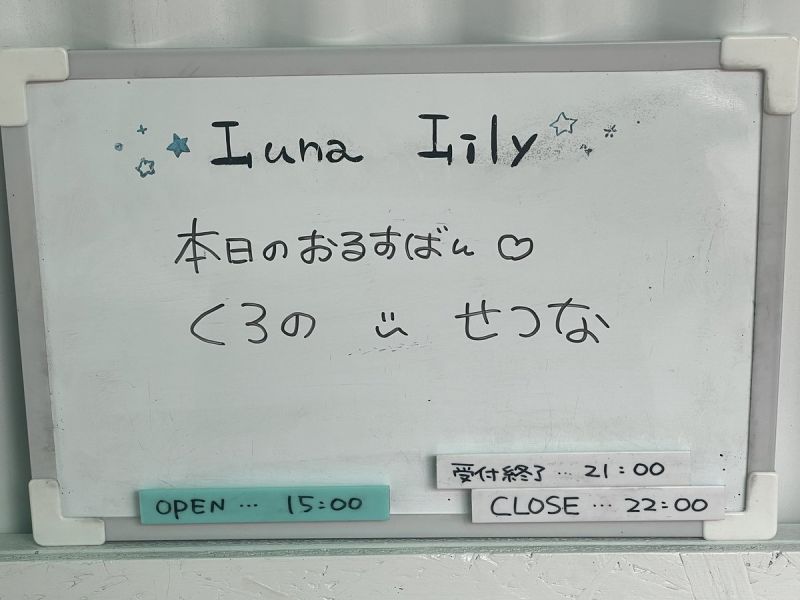 Luna Lily
本日のおるすばん♡
くろの せつな
受付終了…21:00
OPEN…15:00
CLOSE…22:00